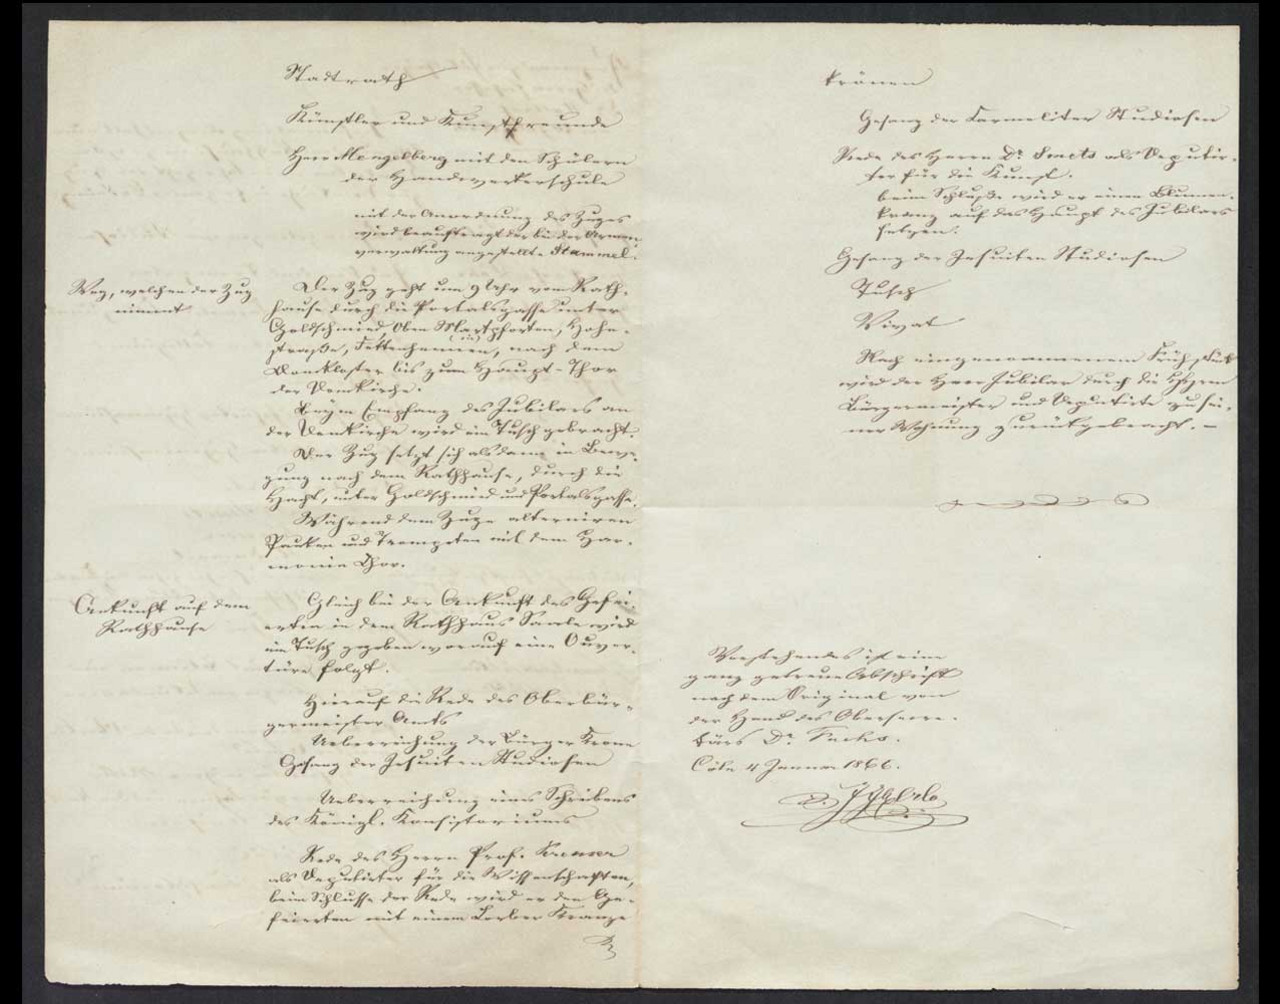 Stadtrath
Künstler und Kunstfreunde
Herr Mengelberg mit den Schülern
der Handwerkerschule
mit der Anordnung des Zuges
wird beauftragt der bei der Armen
verwaltung angestellte Stammel.
Weg, welchen der Zug
nimmt
Der Zug geht um 9 Uhr vom Rath-
hause durch die Portalsgasse unter
Goldschmied, Oben Martpforten, Hohe-
straße, Fettenhennen, nach dem
Domkloster bis zum Haupt-Thor
der Domkirche.
Beym Empfang des Jubilars an
der Domkirche wird ein Tusch gebracht.
Der Zug setzt sich alsdann in Bewe-
gung nach dem Rathhause, durch die
Hacht, unter Goldschmied und Portalsgasse.
Während dem Zuge alterniren
Pauken und Trompeten mit dem Har-
monie Chor.
Ankunft auf dem
Rathhause
Gleich bei der Ankunft des Gefei-
erten in dem Rathhaus Saale wird
ein Tusch gegeben worauf eine Ouver-
türe folgt.
Hierauf die Rede des Oberbür-
germeister Amts
Ueberreichung der Bürger Krone
Gesang der Jesuiten Studiosen
Ueberreichung eines Schreibens
des Königl. Konsistoriums
Rede des Herrn Prof. Kreuser
als Deputirter für die Wissenschaften,
beim Schlusse der Rede wird er den Ge-
feierten mit einem Lorber Kranze
krönen
Gesang der Carmeliter Studiosen
Rede des Herrn Dr. Smets als Deputir-
ter für die Kunst.
beim Schluße wird er einen Blumen-
kranz auf das Haupt des Jubilars
setzen.
Gesang der Jesuiten Studiosen
Tusch
Vivat
Nach eingenommenem Frühstück
wird der Herr Jubilar durch die HHerrn
Bürgermeister und Deputirte zu sei-
ner Wohnung zurückgebracht. –
Vorstehendes ist eine
ganz getreue Abschrift
nach dem Original von
der Hand des Obersecre-
tärs Dr. Fuchs.
Cöln 4 Januar 1866.